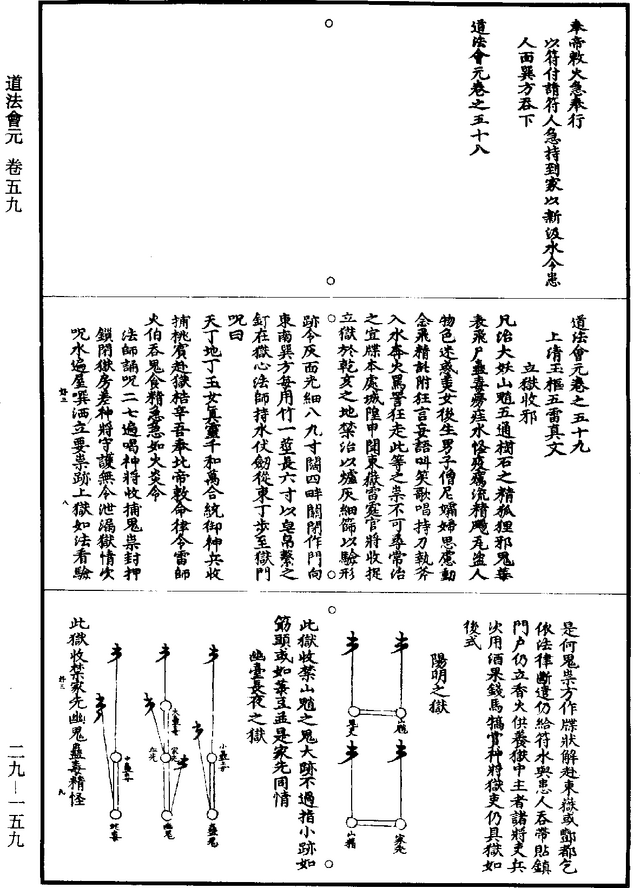 道法會元 卷五九
二九—一五九
奉帝敕火急奉行
以符付請符人急持到家以新汲水令患
人面巽方吞下
道法會元卷之五十八
道法會元卷之五十九
上清玉樞五雷真文
立獄收邪
凡治大妖山魈五通樹石之精狐狸邪鬼
表飛尸蠱毒癆瘵水怪疫癘流精颺瓦盜人
物色迷惑美女後生男子僧尼孀婦思慮動
念飛精訟附狂言妄語叫笑歌唱持刀執斧
入水奔火罵詈狂走此等之祟不可尋常治
之宜牒本處城隍申閞東嶽雷霆官將收捉
立獄於乾亥之地禁治以爐灰細篩以驗形
跡令灰面光細八九寸闊四畔闗閉作門向
東南巽方每用竹一莖長六寸以皂帛繫之
釘在獄心法師持水伏劒從東丁步至獄門
呪曰
天丁地丁玉女真靈千和萬合統御神兵收
捕桃賓赴獄枯辛吾奉北帝敕命律令雷師
火伯吞鬼食精急急如火炎令
法師誦呪二七遍喝神將收捕鬼祟封押
鎖閉獄房差神將守護無令泄漏獄情次
呪水遍屋噀洒立要祟跡上獄如法看驗
是何鬼祟方作牒狀解赴東嶽或酆都乞
依法律斷遣仍給符水與患人吞帶貼鎮
門戶仍立香火供養獄中主者諸將吏兵
次用酒果錢馬犒賞神將獄吏仍具獄如
後式
陽明之獄
山魈
山精
家先
此獄收禁山魈之鬼大跡不過指小跡如
筯頭或如菉豆並是家先同情
幽臺長夜之獄
小蠱毒
蠱鬼
大蠱毒
家先
幽鬼
此獄收禁家先幽鬼蠱毒精怪